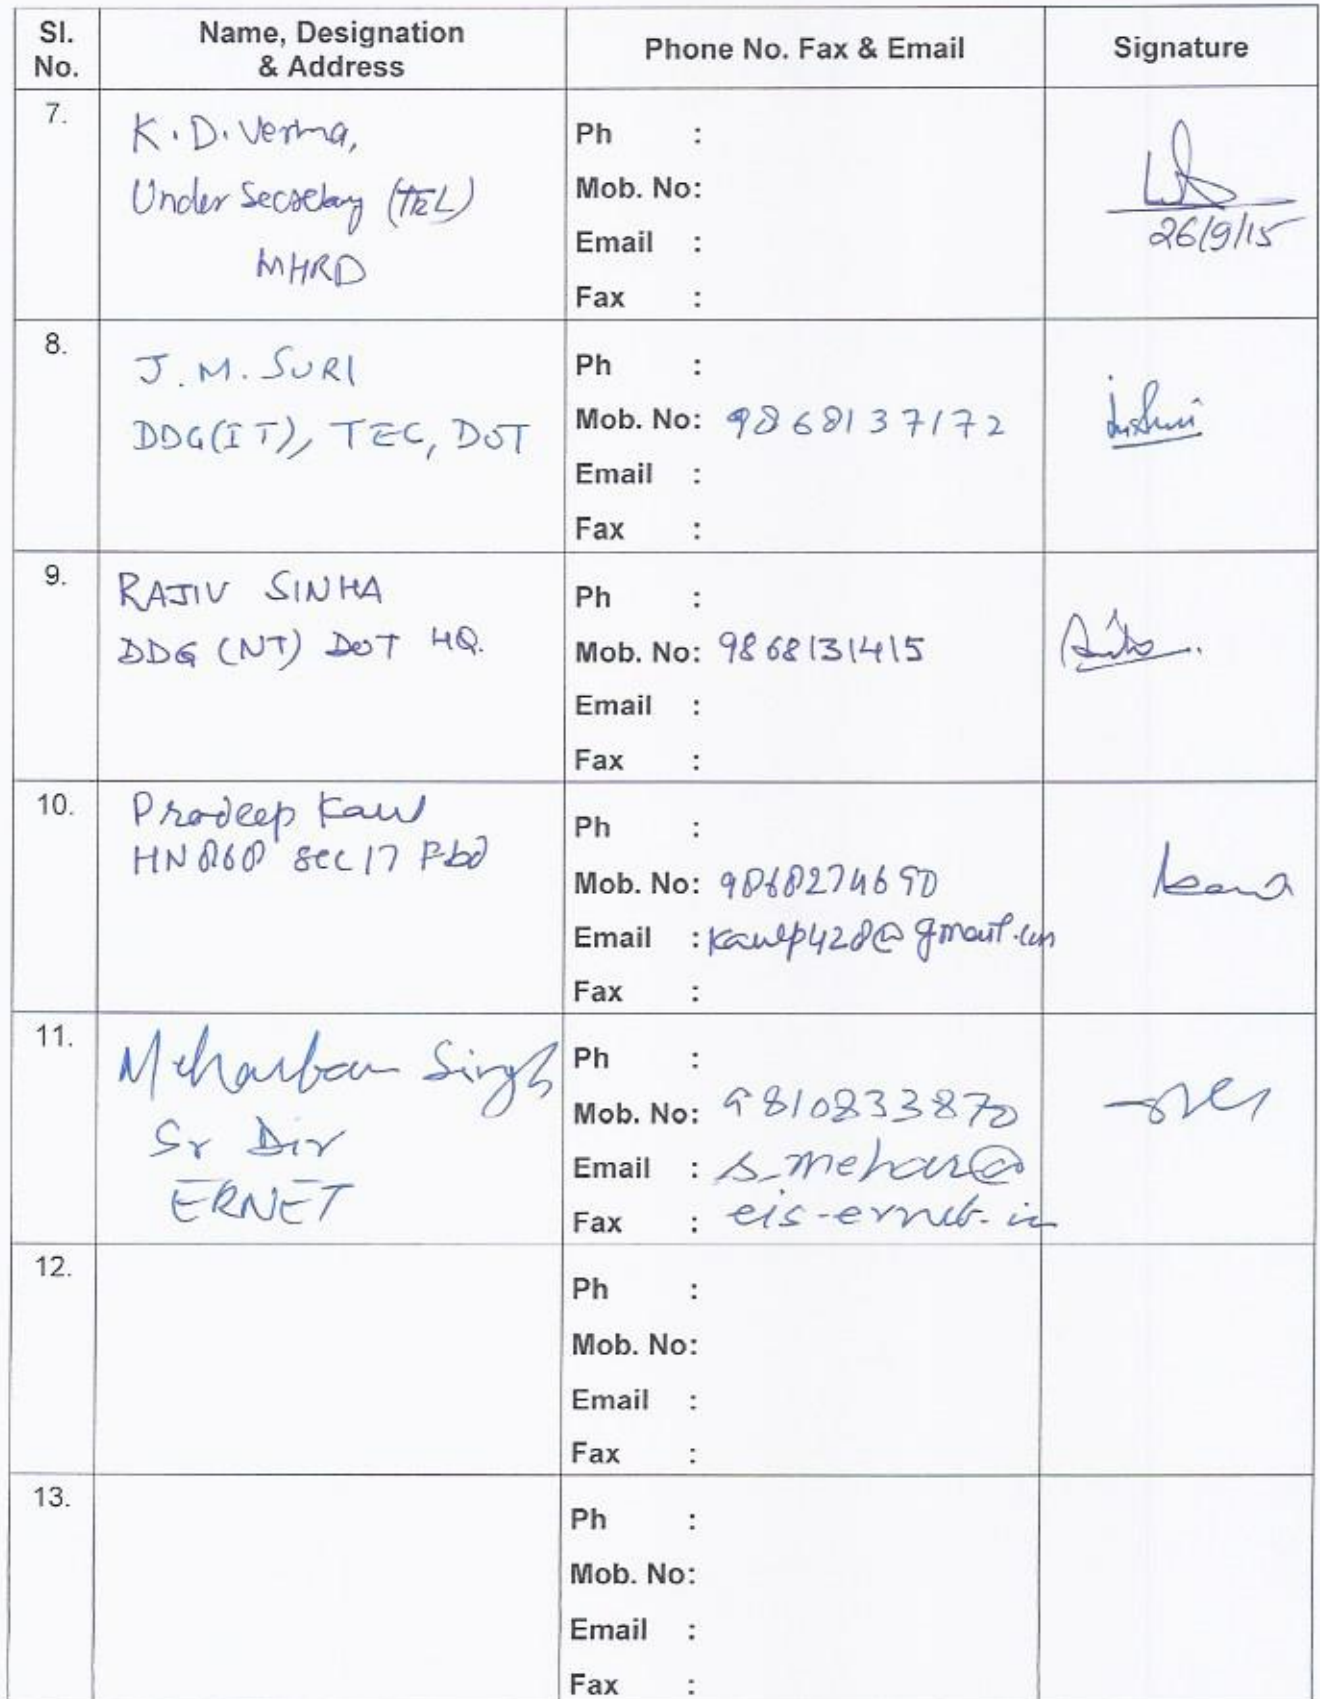 Sl. No.
Name, Designation & Address
Phone No. Fax & Email
Signature
7.
K. D. Verma,
Under Secretary (TEL)
MHRD
Ph :
Mob. No:
Email :
Fax :
26/9/15
8.
J. M. SURI
DDG(IT), TEC, DOT
Ph :
Mob. No: 9868137172
Email :
Fax :
9.
RAJIV SINHA
DDG (NT) DOT HQ.
Ph :
Mob. No: 9868131415
Email :
Fax :
10.
Pradeep Kaul
HN 868 Sec 17 Fbd
Ph :
Mob. No: 9868274690
Email : kaulp428@gmail.com
Fax :
11.
Meharban Singh
Sr Dir
ERNET
Ph :
Mob. No: 9810833870
Email : s_mehar@
Fax : eis-ernet.in
12.
Ph :
Mob. No:
Email :
Fax :
13.
Ph :
Mob. No:
Email :
Fax :